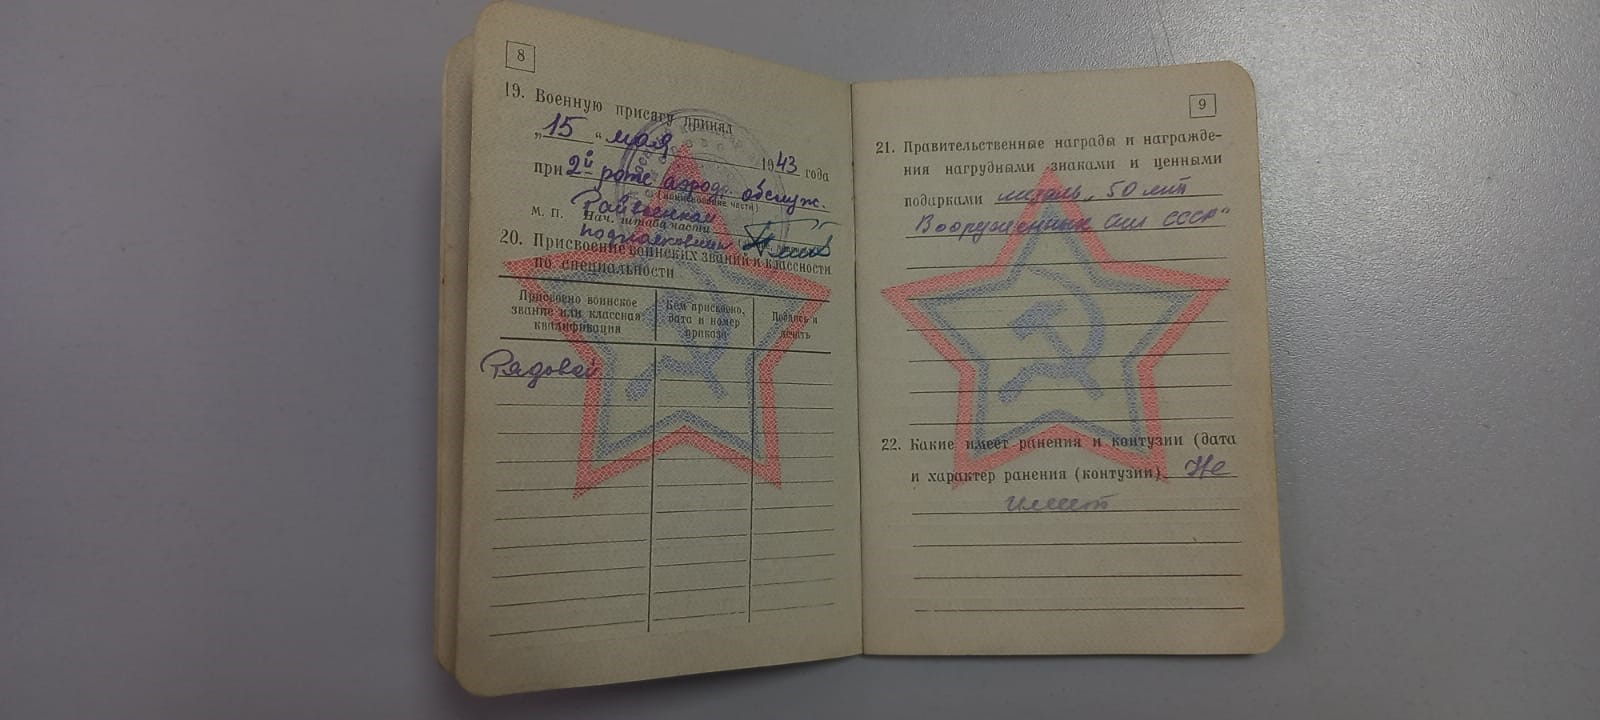 8
19. Военную присягу принял
„15“ мая 1943 года
при 2й роте аэрод. обслуж.
(наименование части)
Райвоенком
М. П. Нач. штаба части
подполковник
20. Присвоение воинских званий и классности
по специальности
Присвоено воинское
звание или классная
квалификация
Кем присвоено,
дата и номер
приказа
Подпись и
печать
Рядовой
9
21. Правительственные награды и награжде-
ния нагрудными знаками и ценными
подарками медаль „50 лет
Вооруженных Сил СССР“
22. Какие имеет ранения и контузии (дата
и характер ранения (контузии) Не
имеет